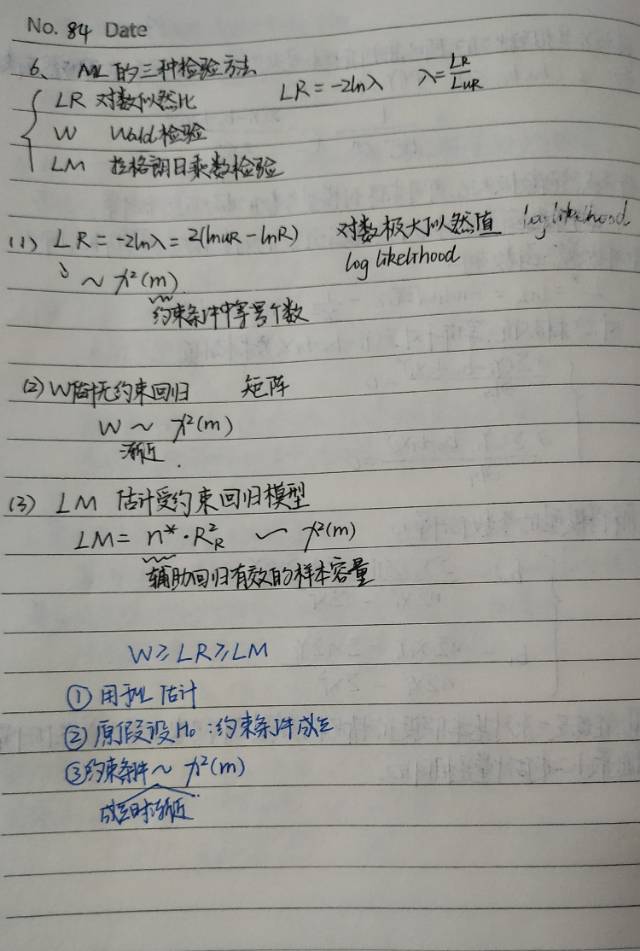 No. 84 Date
6、 ML 的三种检验方法
LR 对数似然比 LR = -2lnλ λ = LR/LUR
W Wald检验
LM 拉格朗日乘数检验
(1) LR = -2lnλ = 2(lnUR - lnR) 对数极大似然值 log likelihood
log likelihood
~ χ²(m)
约束条件中等号个数
(2) W 估计无约束回归 矩阵
W ~ χ²(m)
渐近
(3) LM 估计受约束回归模型
LM = n*·R²R ~ χ²(m)
辅助回归有效的样本容量
W ≥ LR ≥ LM
① 用ML估计
② 原假设H₀:约束条件成立
③ 约束条件 ~ χ²(m)
成立时渐近